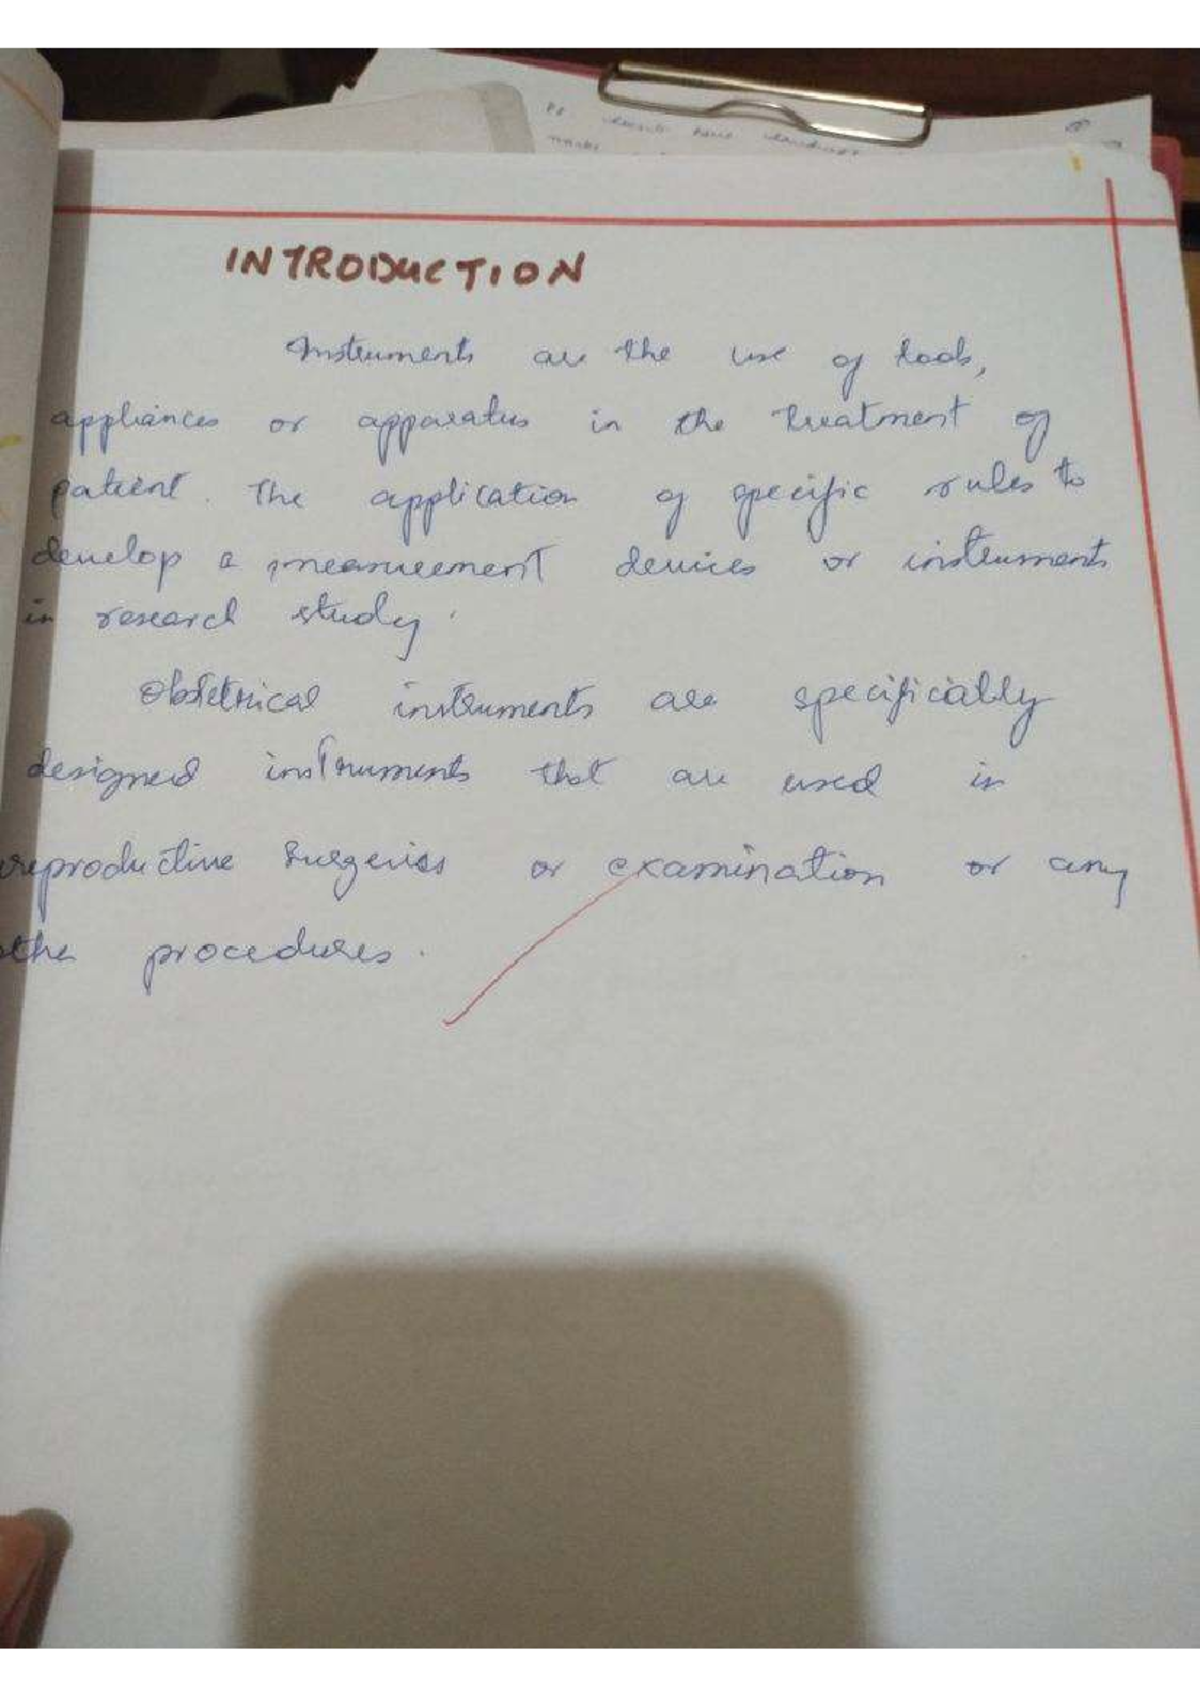 INTRODUCTION
Instruments are the use of tools,
appliances or apparatus in the treatment of
patient. The application of specific rules to
develop a measurement devices or instruments
in research study.
Obstetrical instruments are specificially
designed instruments that are used in
reproductive surgeries or examination or any
othe procedures.